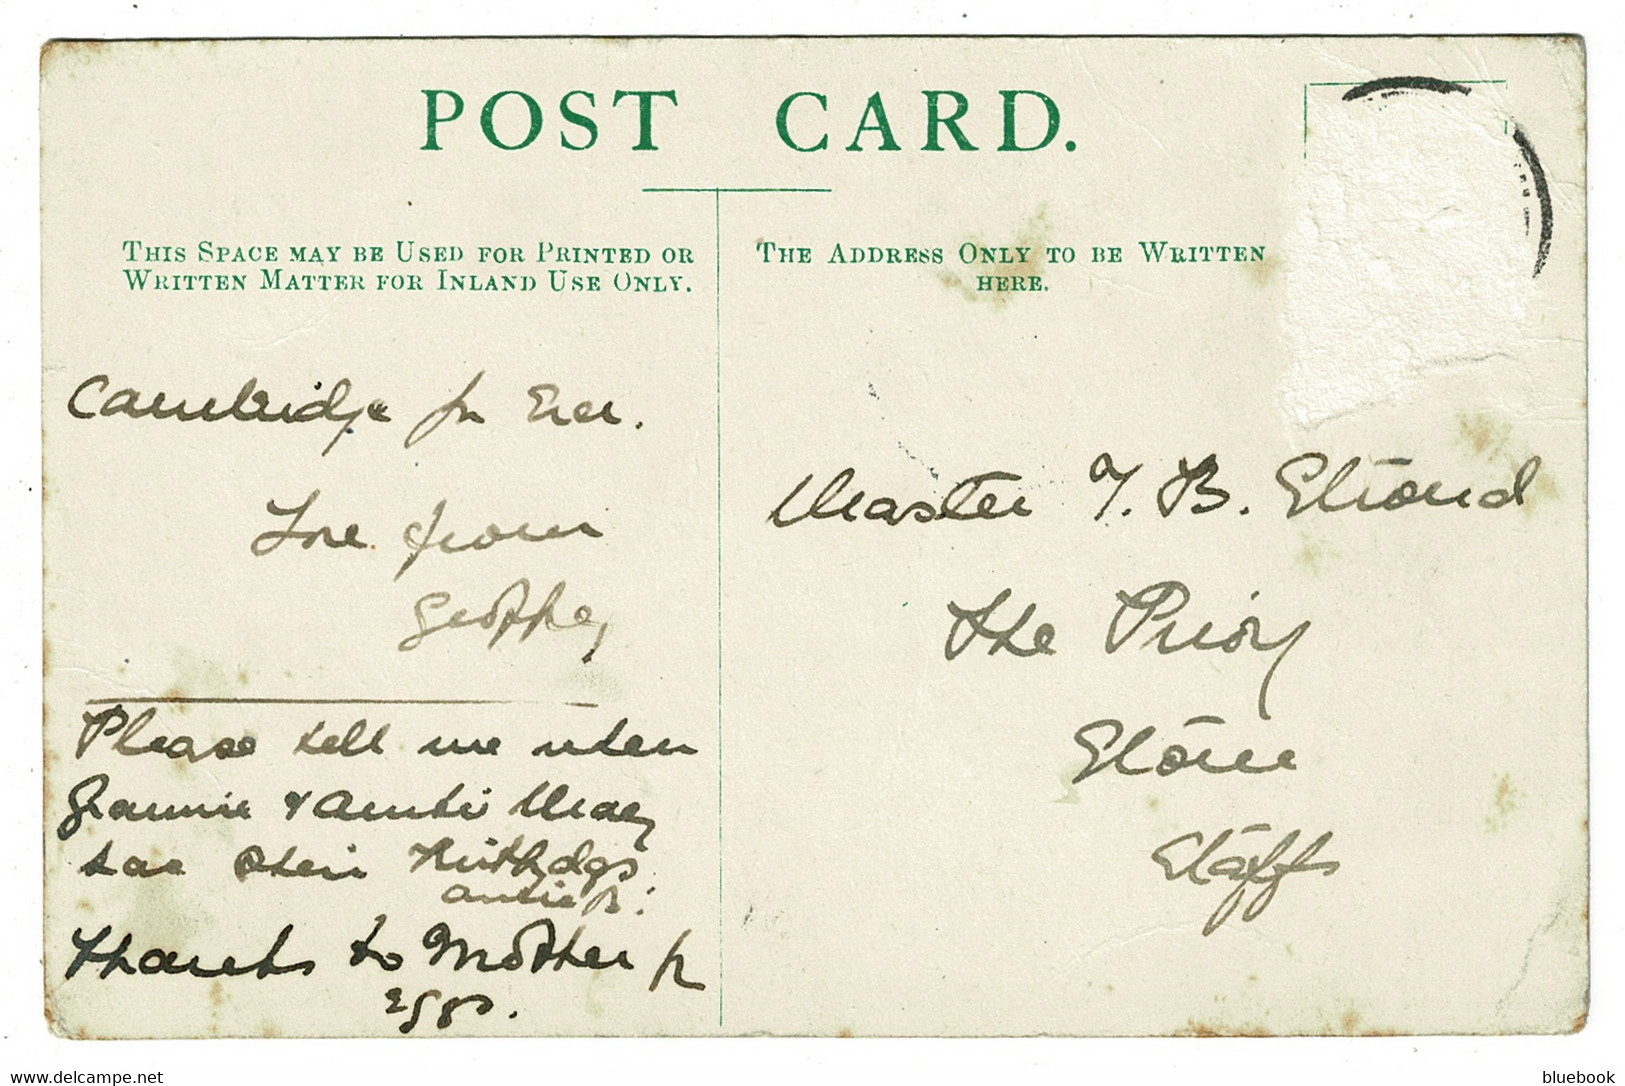 POST CARD.
THIS SPACE MAY BE USED FOR PRINTED OR
WRITTEN MATTER FOR INLAND USE ONLY.
THE ADDRESS ONLY TO BE WRITTEN
HERE.
Cambridge for Ever.
Love from
Geoffrey
Please tell me when
Grannie & Auntie May
have their Birthdays
Auntie B.
Thanks to Mother for
Eggs.
Master T. B. Eltoud
The Priory
Stone
Staffs
delcampe.net
bluebook